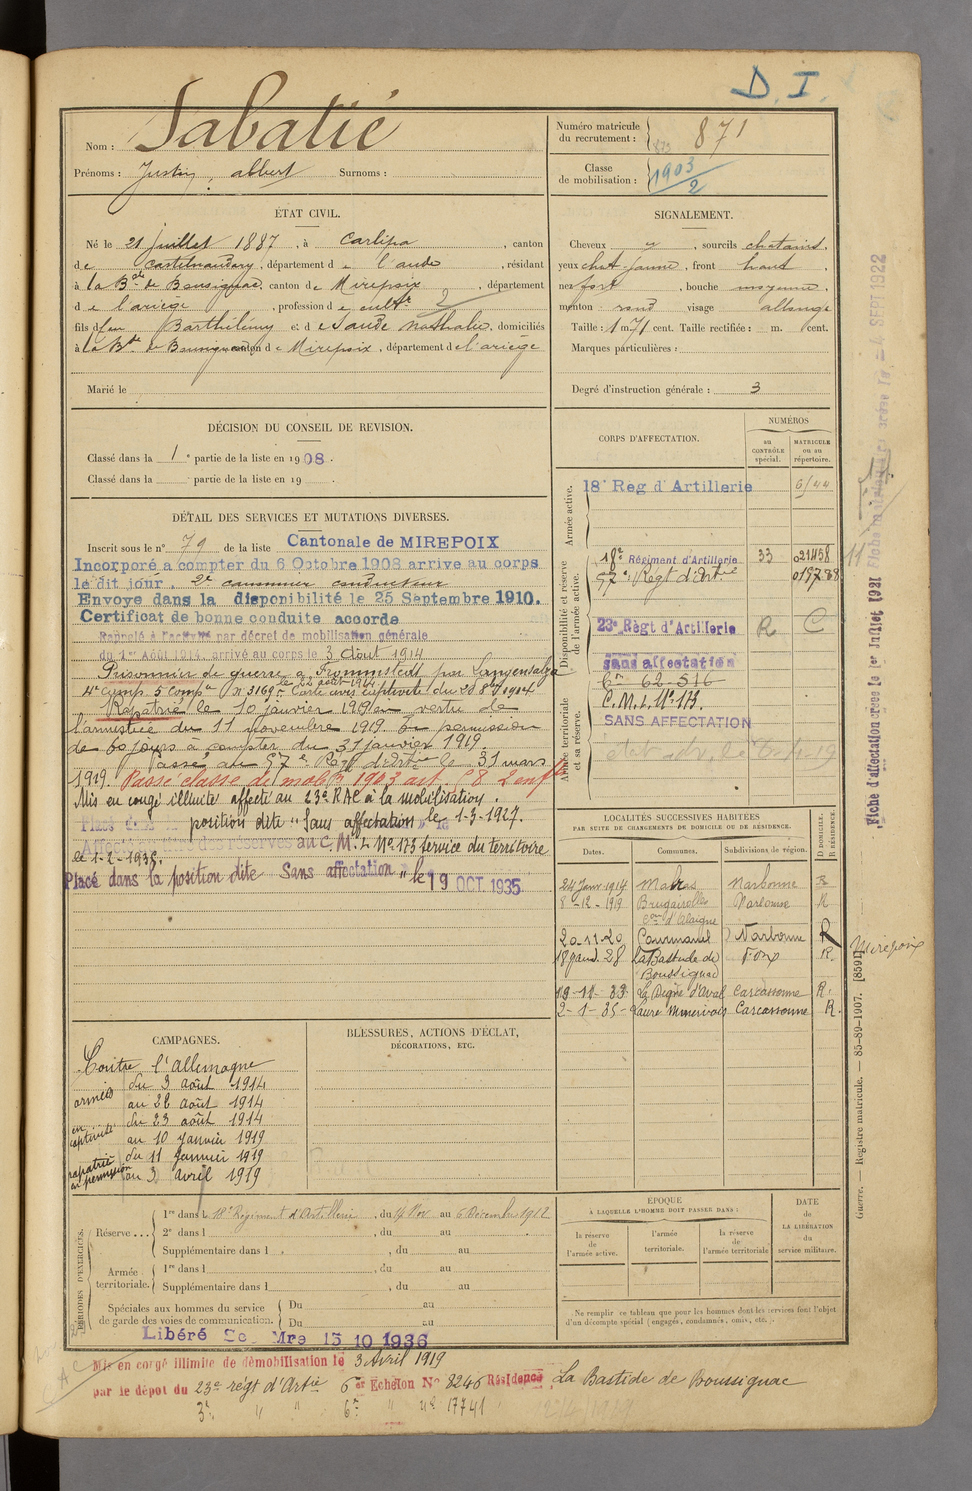 D. I.
Nom : Sabatié
Prénoms : Justin, albert Surnoms :
Numéro matricule du recrutement : 871
Classe de mobilisation : 1903/2
ÉTAT CIVIL.
Né le 21 juillet 1887, à Carlipa, canton
de Castelnaudary, département de l'aude, résidant
à la Bde de Bousignac, canton de Mirepoix, département
de l'ariège, profession de cultr 2
fils de feu Barthélémy et de Naudé nathalie, domiciliés
à la Bde de Bousignac canton de Mirepoix, département de l'ariège
Marié le
SIGNALEMENT.
Cheveux , sourcils chatains,
yeux chat-jaune, front haut,
nez fort, bouche moyenne,
menton rond visage allongé
Taille : 1 m 71 cent. Taille rectifiée : m. cent.
Marques particulières :
Degré d'instruction générale : 3
DÉCISION DU CONSEIL DE REVISION.
Classé dans la 1e partie de la liste en 1908.
Classé dans la partie de la liste en 19 .
DÉTAIL DES SERVICES ET MUTATIONS DIVERSES.
Inscrit sous le n° 79 de la liste Cantonale de MIREPOIX
Incorporé a compter du 6 Octobre 1908 arrive au corps
le dit jour. 2e canonnier conducteur
Envoye dans la disponibilité le 25 Septembre 1910.
Certificat de bonne conduite accorde
Rappelé à l'activité par décret de mobilisation générale
du 1er Août 1914, arrivé au corps le 3 Aout 1914
Prisonnier de guerre a Frommstedt par Langensalza
le 22 août 1914
4e Comp. 5 Compie N 3169 Carte avis captivité du 28 8bre 1914
Rapatrié le 10 janvier 1919 en vertu de
l'armistice du 11 novembre 1919. En permission
de 60 jours a compter du 31 janvier 1919.
Passé au 57e Regt d'Artie le 31 mars
1919. Passé classe de mobon 1903 art. 58 2 enfts
Mis en congé illimité affecté au 23e RAC à la mobilisation.
Placé dans la position dite "Sans affectation" le 1-3-1927.
Affecté des réserves au C.M.L. N° 173 service du territoire
le 1-2-1935.
Placé dans la position dite "Sans affectation" le 19 OCT. 1935
CORPS D'AFFECTATION.
NUMÉROS
au CONTRÔLE spécial.
MATRICULE ou au répertoire.
Armée active.
18e Reg d'Artillerie
Disponibilité et réserve de l'armée active.
18e Régiment d'Artillerie 33 021458
57e Regt d'Artie 019788
23e Règt d'Artillerie R C
sans affectation
Armée territoriale et sa réserve.
6er 62-516
C.M.L. N° 173.
SANS AFFECTATION
LOCALITÉS SUCCESSIVES HABITÉES
PAR SUITE DE CHANGEMENTS DE DOMICILE OU DE RÉSIDENCE.
Dates. Communes. Subdivisions de région. D DOMICILE. R RÉSIDENCE.
24 Janv 1914 Narbonne R
8-12-1919 Brugairolles con d'Alaigne Narbonne R
20-11-20 Cournanel Narbonne R
18 janv. 28 La Bastide de Boussignac Foix R.
19-12-33 La Digne d'Aval Carcassonne R.
2-1-35 Laure Minervois Carcassonne R.
CAMPAGNES.
Contre l'Allemagne
armées du 3 août 1914
au 22 août 1914
en captivité du 23 août 1914
au 10 janvier 1919
rapatrié en permission du 11 janvier 1919
au 3 avril 1919
BLESSURES, ACTIONS D'ÉCLAT,
DÉCORATIONS, ETC.
PÉRIODES D'EXERCICES.
Réserve.... 1re dans le 18e Régiment d'Artillerie, du 14 Nov au 6 Décembre 1912
2e dans l , du au
Supplémentaire dans l , du au
Armée territoriale. 1re dans l , du au
Supplémentaire dans l , du au
Spéciales aux hommes du service de garde des voies de communication. Du au
Du au
ÉPOQUE
À LAQUELLE L'HOMME DOIT PASSER DANS :
la réserve de l'armée active.
l'armée territoriale.
la réserve de l'armée territoriale
DATE de LA LIBÉRATION du service militaire.
Ne remplir ce tableau que pour les hommes dont les services font l'objet
d'un décompte spécial (engagés, condamnés, omis, etc.).
Libéré Mre 15 10 1936
Mis en corgé illimite de démobilisation le 3 Avril 1919
par le dépot du 23e régt d'Artie 6er Echelon N° 8246 Résidence La Bastide de Boussignac
3e " " 6er " n° 17741
Fiche d'affectation créée le 1er Juillet 1921
4 SEPT 1922
Mirepoix
Guerre. — Registre matricule. — 85-89-1907. [8591]